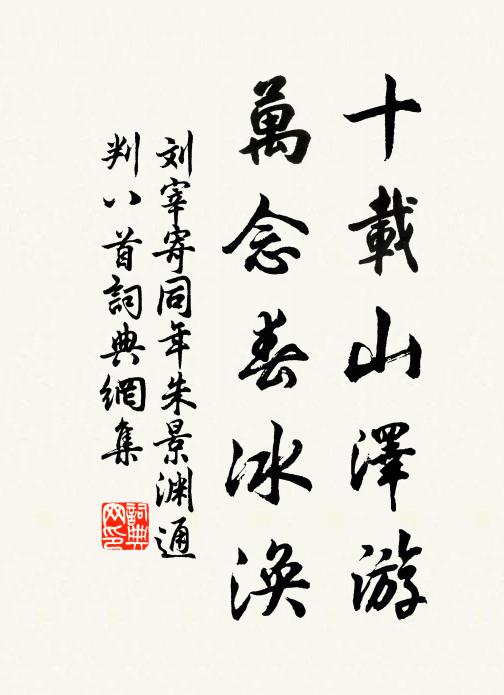 十載山澤游
萬念春冰渙
刘宰寄同年朱景渊通
判八首詞典網集
詞典網印